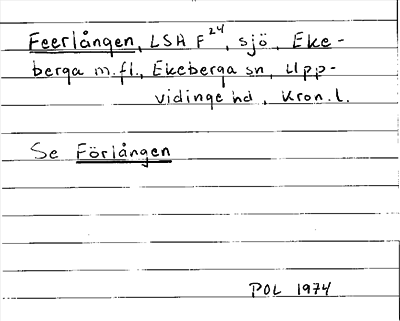 Feerlången, LSH F 24, sjö, Eke-
berga m.fl., Ekeberga sn, Upp-
vidinge hd, Kron.l.
Se Förlången
POL 1974